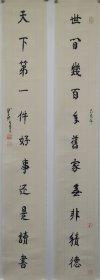 世間幾百年舊家無非積德
天下第一件好事还是讀書